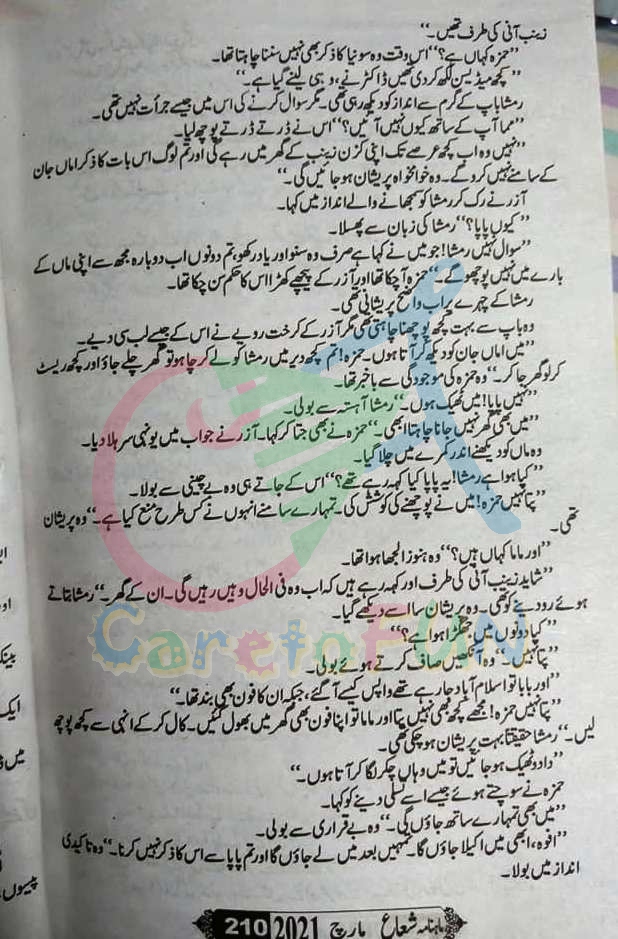 زینب آنی کی طرف تھیں۔“
”حمزہ کہاں ہے؟“ اس وقت وہ سونیا کا ذکر بھی نہیں سننا چاہتا تھا۔
”کچھ میڈیسن لکھ کر دی تھیں ڈاکٹر نے، وہی لینے گیا ہے۔“
رمشا باپ کے گرم سے انداز کو دیکھ رہی تھی۔ مگر سوال کرنے کی اس میں جیسے جرأت نہیں تھی۔
”مما آپ کے ساتھ کیوں نہیں آئیں؟“ اس نے ڈرتے ڈرتے پوچھ لیا۔
”نہیں وہ اب کچھ عرصے تک اپنی کزن زینب کے گھر میں رہے گی اور تم لوگ اس بات کا ذکر اماں جان
کے سامنے نہیں کرو گے۔ وہ خوامخواہ پریشان ہو جائیں گی۔“
آزر نے رک کر رمشا کو سمجھانے والے انداز میں کہا۔
”کیوں پاپا؟“ رمشا کی زبان سے پھسلا۔
”سوال نہیں رمشا! جو میں نے کہا ہے صرف وہ سنو اور یاد رکھو، تم دونوں اب دوبارہ مجھ سے اپنی ماں کے
بارے میں نہیں پوچھو گے۔“ حمزہ آ چکا تھا اور آزر کے پیچھے کھڑا اس کا حکم سن چکا تھا۔
رمشا کے چہرے پر اب واضح پریشانی تھی۔
وہ باپ سے بہت کچھ پوچھنا چاہتی تھی مگر آزر کے کرخت رویے نے اس کے جیسے لب سی دیے۔
”میں اماں جان کو دیکھ کر آتا ہوں۔ حمزہ! تم کچھ دیر میں رمشا کو لے کر چاہو تو گھر چلے جاؤ اور کچھ ریسٹ
کر لو گھر جا کر۔“ وہ حمزہ کی موجودگی سے باخبر تھا۔
”نہیں پاپا! میں ٹھیک ہوں۔“ رمشا آہستہ سے بولی۔
”میں بھی گھر نہیں جانا چاہتا ابھی۔“ حمزہ نے بھی جتا کر کہا۔ آزر نے جواب میں یونہی سر ہلا دیا۔
وہ ماں کو دیکھنے اندر کمرے میں چلا گیا۔
”کیا ہوا ہے رمشا! یہ پاپا کیا کہہ رہے تھے؟“ اس کے جاتے ہی وہ بے چینی سے بولا۔
”پتا نہیں حمزہ! میں نے پوچھنے کی کوشش کی۔ تمہارے سامنے انہوں نے کس طرح منع کیا ہے۔“ وہ پریشان
تھی۔
”اور ماما کہاں ہیں؟“ وہ ہنوز الجھا ہوا تھا۔
”شاید زینب آنی کی طرف اور کہہ رہے ہیں کہ اب وہ فی الحال وہیں رہیں گی۔ ان کے گھر۔“ رمشا بتاتے
ہوئے رو دینے کو تھی۔ وہ پریشان سا اسے دیکھے گیا۔
”کیا دونوں میں جھگڑا ہوا ہے؟“
”پتا نہیں۔“ وہ آنکھیں صاف کرتے ہوئے بولی۔
”اور بابا تو اسلام آباد جا رہے تھے واپس کیسے آ گئے، جبکہ ان کا فون بھی بند تھا۔“
”پتا نہیں حمزہ! مجھے کچھ بھی نہیں پتا اور ماما تو اپنا فون بھی گھر میں بھول گئیں۔ کال کر کے انہی سے کچھ پوچھ
لیں۔“ رمشا حقیقتاً بہت پریشان ہو چکی تھی۔
”دادو ٹھیک ہو جائیں تو میں وہاں چکر لگا کر آتا ہوں۔“
حمزہ نے سوچتے ہوئے جیسے اسے تسلی دینے کو کہا۔
”میں بھی تمہارے ساتھ جاؤں گی۔“ وہ بے قراری سے بولی۔
”افوہ، ابھی میں اکیلا جاؤں گا۔ تمہیں بعد میں لے جاؤں گا اور تم پاپا سے اس کا ذکر نہیں کرنا۔“ وہ تاکیدی
انداز میں بولا۔
ماہنامہ شعاع مارچ 2021 210
CaretoFUN
او
بینک
ایک
میں
پیسوں